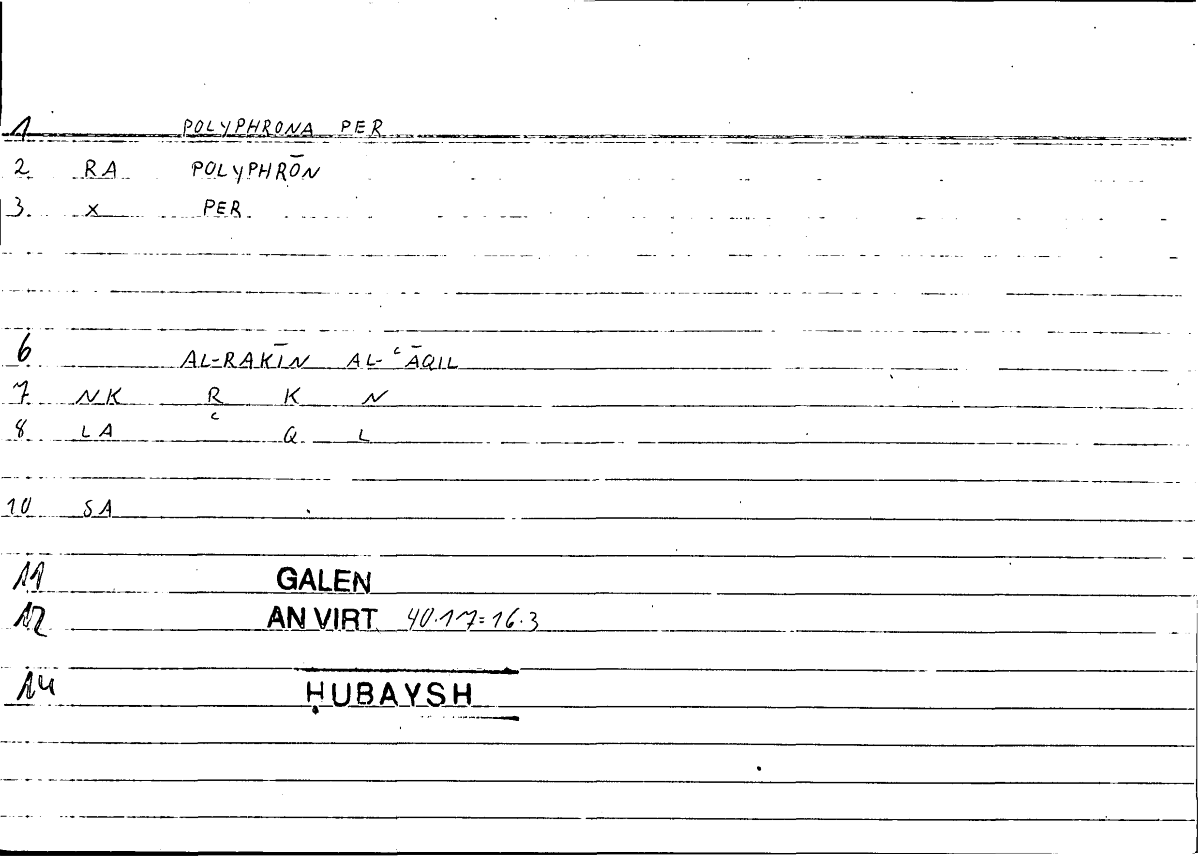 1 POLYPHRONA PER
2 RA POLYPHRŌN
3 x PER
6 AL-RAKĪN AL-ʿĀQIL
7 NK R K N
8 LA ʿ Q L
10 SA
11 GALEN
12 AN VIRT 40.17=16.3
14 ḤUBAYSH